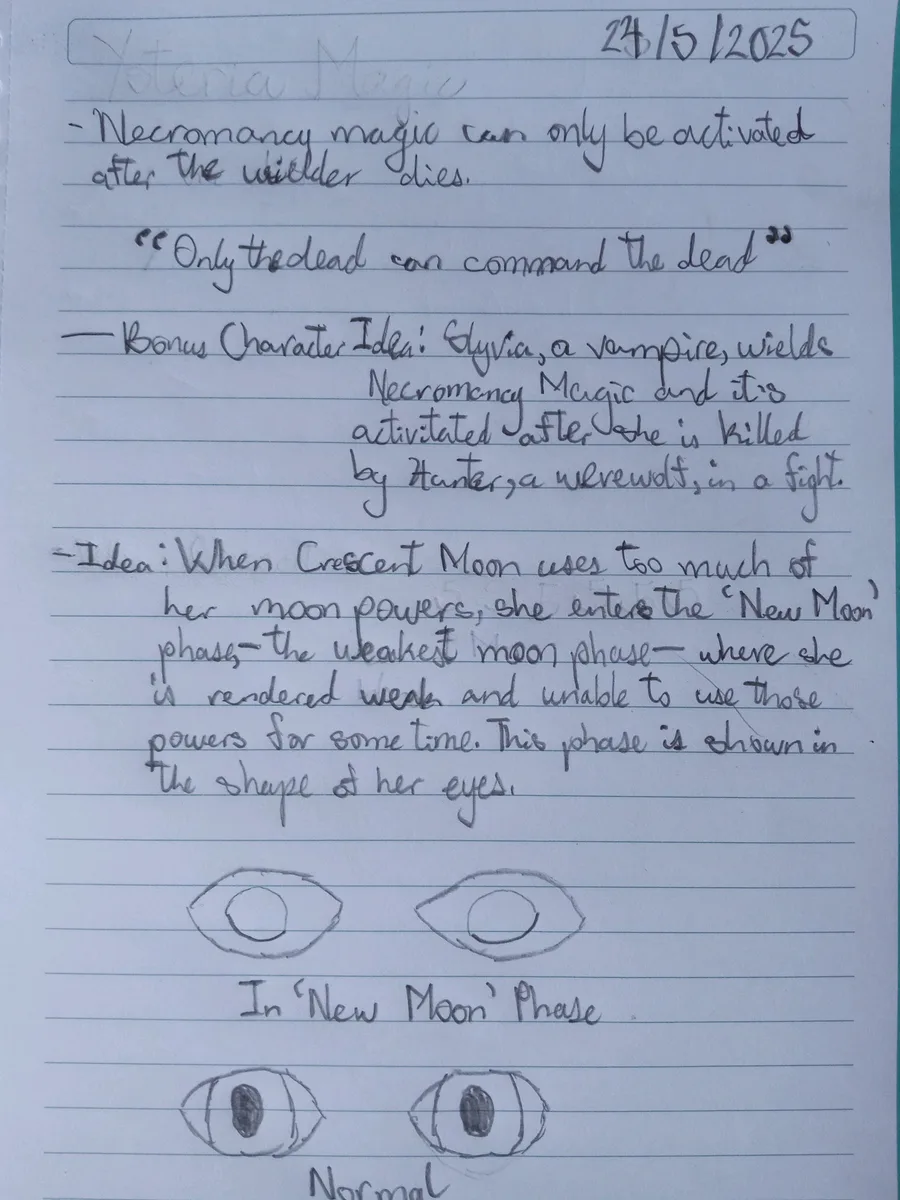 24/5/2025
Yoteria Magic
- Necromancy magic can only be activated
after the wielder dies.
“Only the dead can command the dead”
— Bonus Character Idea: Slyvia, a vampire, wields
Necromancy Magic and it is
activitated after she is killed
by Hunter, a werewolf, in a fight.
- Idea: When Crescent Moon uses too much of
her moon powers, she enters the ‘New Moon’
phase, – the weakest moon phase – where she
is rendered weak and unable to use those
powers for some time. This phase is shown in
the shape of her eyes.
In ‘New Moon’ Phase
Normal